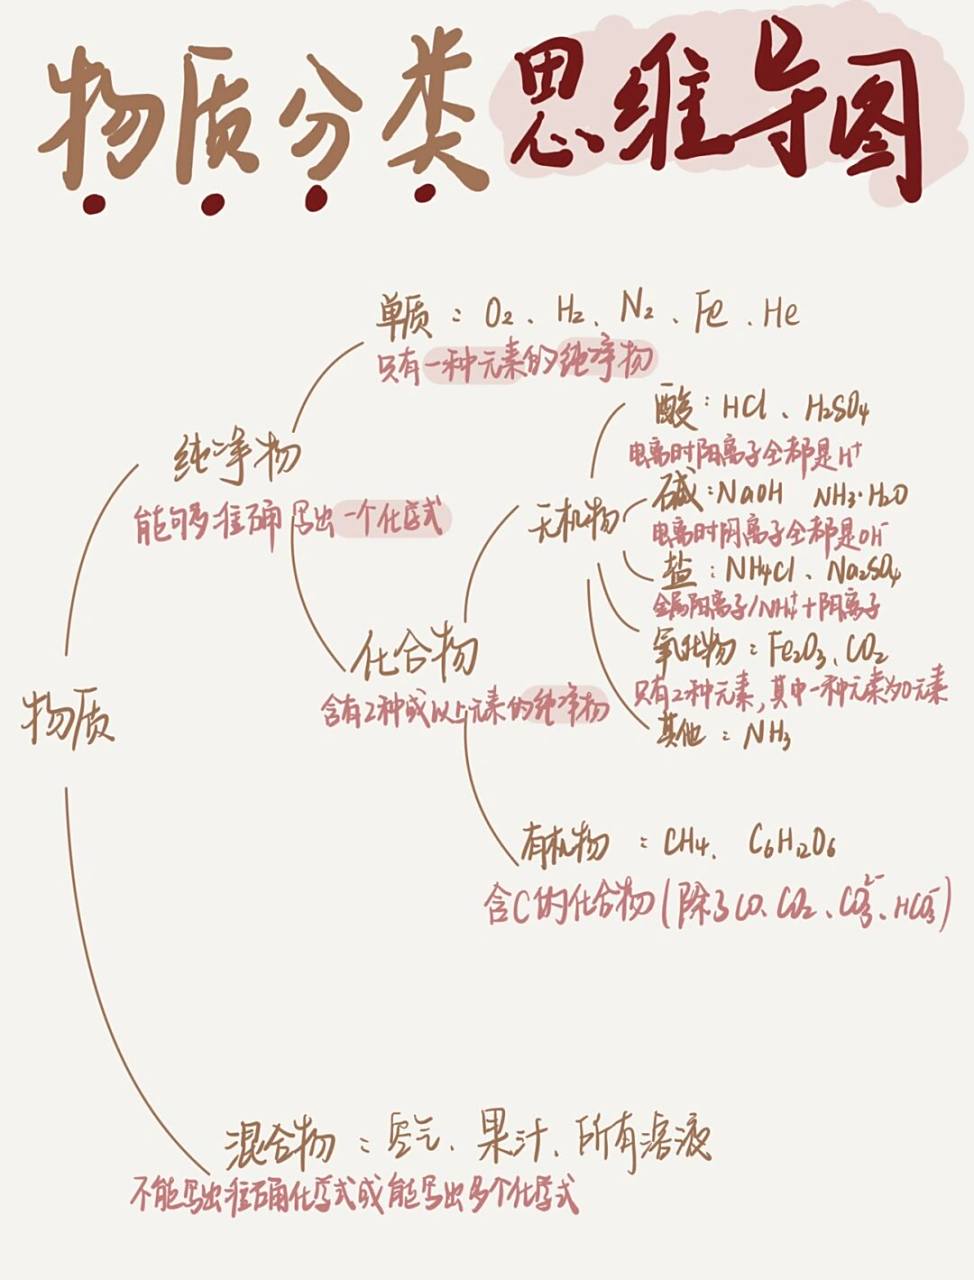 物质分类思维导图
单质：O₂、H₂、N₂、Fe、He
只有一种元素的纯净物
纯净物
能够准确写出一个化学式
无机物
酸：HCl、H₂SO₄
电离时阳离子全都是H⁺
碱：NaOH NH₃·H₂O
电离时阴离子全都是OH⁻
盐：NH₄Cl、Na₂SO₄
金属阳离子/NH₄⁺+阴离子
氧化物：Fe₂O₃、CO₂
只有2种元素，其中一种元素为O元素
其他：NH₃
化合物
含有2种或以上元素的纯净物
物质
有机物：CH₄、C₆H₁₂O₆
含C的化合物(除了CO、CO₂、CO₃²⁻、HCO₃⁻)
混合物：空气、果汁、所有溶液
不能写出准确化学式或能写出多个化学式